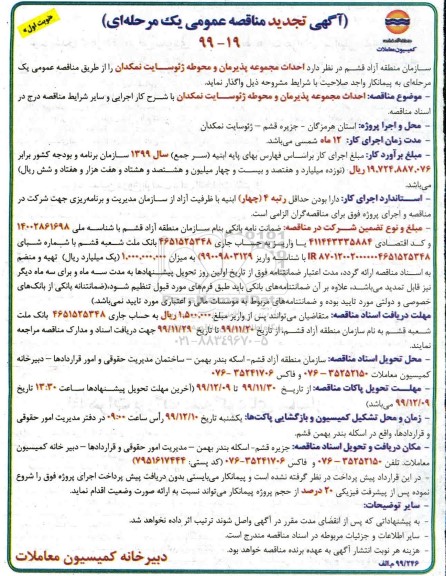 نوبت اول
(آگهی تجدید مناقصه عمومی یک مرحله‌ای)
۹۹-۱۹
کمیسیون معاملات
سازمان منطقه آزاد قشم در نظر دارد احداث مجموعه پذیرمان و محوطه ژئوسایت نمکدان را از طریق مناقصه عمومی یک
مرحله‌ای به پیمانکار واجد صلاحیت با شرایط مشروحه ذیل واگذار نماید.
- موضوع مناقصه: احداث مجموعه پذیرمان و محوطه ژئوسایت نمکدان با شرح کار اجرایی و سایر شرایط مناقصه درج در
اسناد مناقصه.
- محل و اجرا پروژه: استان هرمزگان - جزیره قشم – ژئوسایت نمکدان
- مدت زمان اجرای کار: ۱۲ ماه شمسی می‌باشد.
- مبلغ برآورد کار: مبلغ اجرای کار براساس فهارس بهای پایه ابنیه (سر جمع) سال ۱۳۹۹ سازمان برنامه و بودجه کشور برابر
۱۹.۷۲۴.۸۸۷.۰۷۶ ریال (نوزده میلیارد و هفتصد و بیست و چهار میلیون و هشتصد و هشتاد و هفت هزار و هفتاد و شش ریال)
می‌باشد.
- استاندارد اجرای کار: دارا بودن حداقل رتبه ۴ (چهار) ابنیه با ظرفیت آزاد از سازمان مدیریت و برنامه‌ریزی جهت شرکت در
مناقصه و اجرای پروژه فوق برای مناقصه‌گران الزامی است.
- مبلغ و نوع تضمین شرکت در مناقصه: ضمانت نامه بانکی بنام سازمان منطقه آزاد قشم با شناسه ملی ۱۴۰۰۲۸۶۱۶۹۸
و کد اقتصادی ۴۱۱۴۴۳۳۳۵۸۸۴ یا واریز به حساب جاری ۴۶۵۱۵۲۵۳۴۸ بانک ملت شعبه قشم با شماره شبای
با شناسه واریز ۹۹۰۰۹۸۰۳۱۲۹ به میزان ۱.۰۰۰.۰۰۰.۰۰۰ (یک میلیارد ریال) تهیه و منضم
به اسناد مناقصه ارائه گردد، مدت اعتبار ضمانتنامه فوق از تاریخ اولین روز تحویل پیشنهادها به مدت سه ماه و برای سه ماه دیگر
نیز قابل تمدید می‌باشد، علاوه بر آن ضمانتنامه‌های بانکی باید طبق فرم‌های مورد قبول تنظیم شود،(ضمانتنامه بانکی از بانک‌های
خصوصی و دولتی مورد تایید بوده و ضمانتنامه‌های مربوط به موسسات مالی و اعتباری مورد تایید نمی‌باشد)
مهلت دریافت اسناد مناقصه: متقاضیان می‌توانند پس از واریز مبلغ ۱.۵۰۰.۰۰۰ ریال به حساب جاری ۴۶۵۱۵۲۵۳۴۸ بانک ملت
شعبه قشم به نام سازمان منطقه آزاد قشم، از تاریخ ۹۹/۱۱/۲۰ تا تاریخ ۹۹/۱۱/۲۹ جهت دریافت اسناد و مدارک مناقصه مراجعه
نمایند.
- محل تحویل اسناد مناقصه: سازمان منطقه آزاد قشم- اسکله بندر بهمن – ساختمان مدیریت حقوقی و امور قراردادها – دبیرخانه
کمیسیون معاملات ۳۵۲۵۲۱۵۰-۰۷۶ و فاکس ۳۵۲۴۱۷۰۶-۰۷۶
- مهلت تحویل پاکات مناقصه: از تاریخ ۹۹/۱۱/۳۰ تا ۹۹/۱۲/۰۹ (آخرین مهلت تحویل پیشنهادها ساعت ۱۳:۳۰ تاریخ
۹۹/۱۲/۰۹ می‌باشد)
- زمان و محل تشکیل کمیسیون و بازگشایی پاکت‌ها: یکشنبه تاریخ ۹۹/۱۲/۱۰ رأس ساعت ۰۹:۰۰ در دفتر مدیریت امور حقوقی
و قراردادها، واقع در اسکله بندر بهمن قشم.
- مکان دریافت و تحویل اسناد مناقصه: جزیره قشم- اسکله بندر بهمن – مدیریت امور حقوقی و قراردادها – دبیر خانه کمیسیون
معاملات، تلفن ۳۵۲۵۲۱۵۰-۰۷۶ و فاکس ۳۵۲۴۱۷۰۶-۰۷۶ (کد پستی: ۷۹۵۱۶۱۷۴۴۴)
- در این قرارداد پیش پرداخت در نظر گرفته نشده است و پیمانکار می‌بایستی بدون دریافت پیش پرداخت اجرای پروژه فوق را شروع
نموده پس از پیشرفت فیزیکی ۲۰ درصد از حجم پروژه پیمانکار می‌تواند نسبت به ارائه صورت وضعیت اقدام نماید.
- سایر توضیحات:
- به پیشنهاداتی که پس از انقضای مدت مقرر در آگهی واصل شوند ترتیب اثر داده نخواهد شد.
- سایر اطلاعات و جزئیات مربوطه در اسناد مناقصه مندرج است.
- هزینه هر نوبت انتشار آگهی به عهده برنده مناقصه خواهد بود.
۹۹/۲۴۶ م.الف
دبیرخانه کمیسیون معاملات